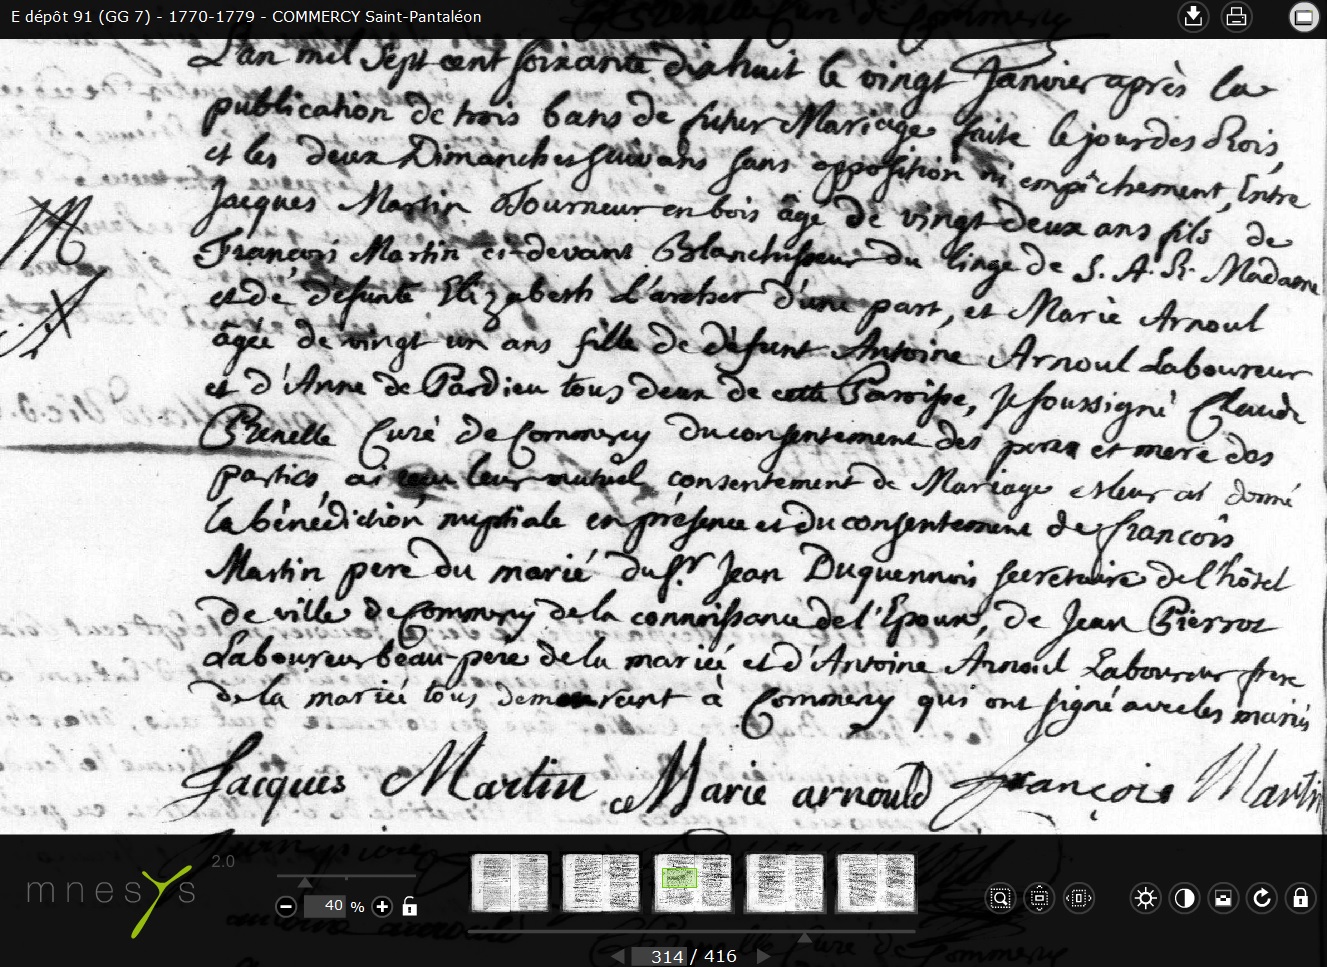 E dépôt 91 (GG 7) - 1770-1779 - COMMERCY Saint-Pantaléon
L'an mil Sept cent soixante dixhuit le vingt Janvier après la
publication de trois bans de futur Mariage faite le jour des Rois,
et les deux Dimanches suivans sans opposition ni empêchement, Entre
Jacques Martin Tourneur en bois âgé de vingt deux ans fils de
M
François Martin ci-devant Blanchisseur du linge de S. A. R. Madame
et de défunte Elizabeth L'archer d'une part, et Marie Arnoul
âgée de vingt un ans fille de défunt Antoine Arnoul Laboureur
et d'Anne de Pardieu tous deux de cette Paroisse, je soussigné Claude
Prenelle Curé de Commercy du consentement des peres et mere des
parties ai reçu leur mutuel consentement de Mariage et leur ai donné
la bénédiction nuptiale en présence et du consentement de françois
Martin pere du marié du Sr. Jean Duquennois secretaire de l'hôtel
de ville de Commercy de la connoissance de l'Epoux, de Jean Pierrot
Laboureur beau-pere de la mariée et d'Antoine Arnoul Laboureur frere
de la mariée tous demeurant à Commercy qui ont signé avec les mariés
Jacques Martin Marie arnould françois Martin
mnesys 2.0
40 %
314 / 416